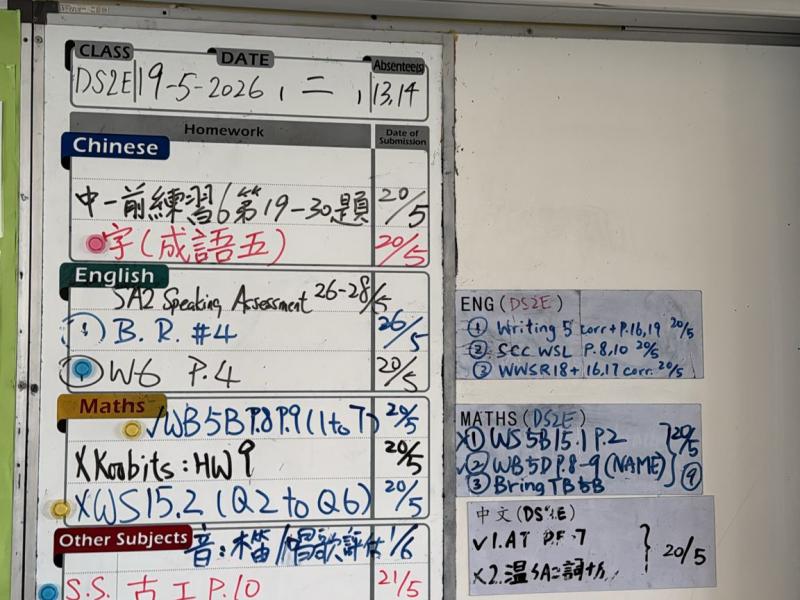 CLASS DATE Absentee(s)
DS2E 19-5-2026, 二, 13,14
Homework Date of Submission
Chinese
中一前練習6第19-30題 20/5
字(成語五) 20/5
English
SA2 Speaking Assessment 26-28/5
① B.R. #4 26/5
W6 P.4 20/5
Maths
√WB5B P.8 P.9 (1 to 7) 20/5
X Koobits: HW9 20/5
X WS15.2 (Q2 to Q6) 20/5
Other Subjects
音:木笛/唱歌評估 1/6
S.S. 古工 P.10 21/5
ENG (DS2E)
① Writing 5 corr + P.16,19 20/5
② SCC WSL P.8,10 20/5
③ WWSR18 + 16,17 corr. 20/5
MATHS (DS2E)
X① WS 5B15.1 P.2
② WB 5D P.8-9 (NAME) 20/5 ⑨
③ Bring TB 5B
中文 (DS2E)
√1. AT 20/5
X2. 温SA二詞